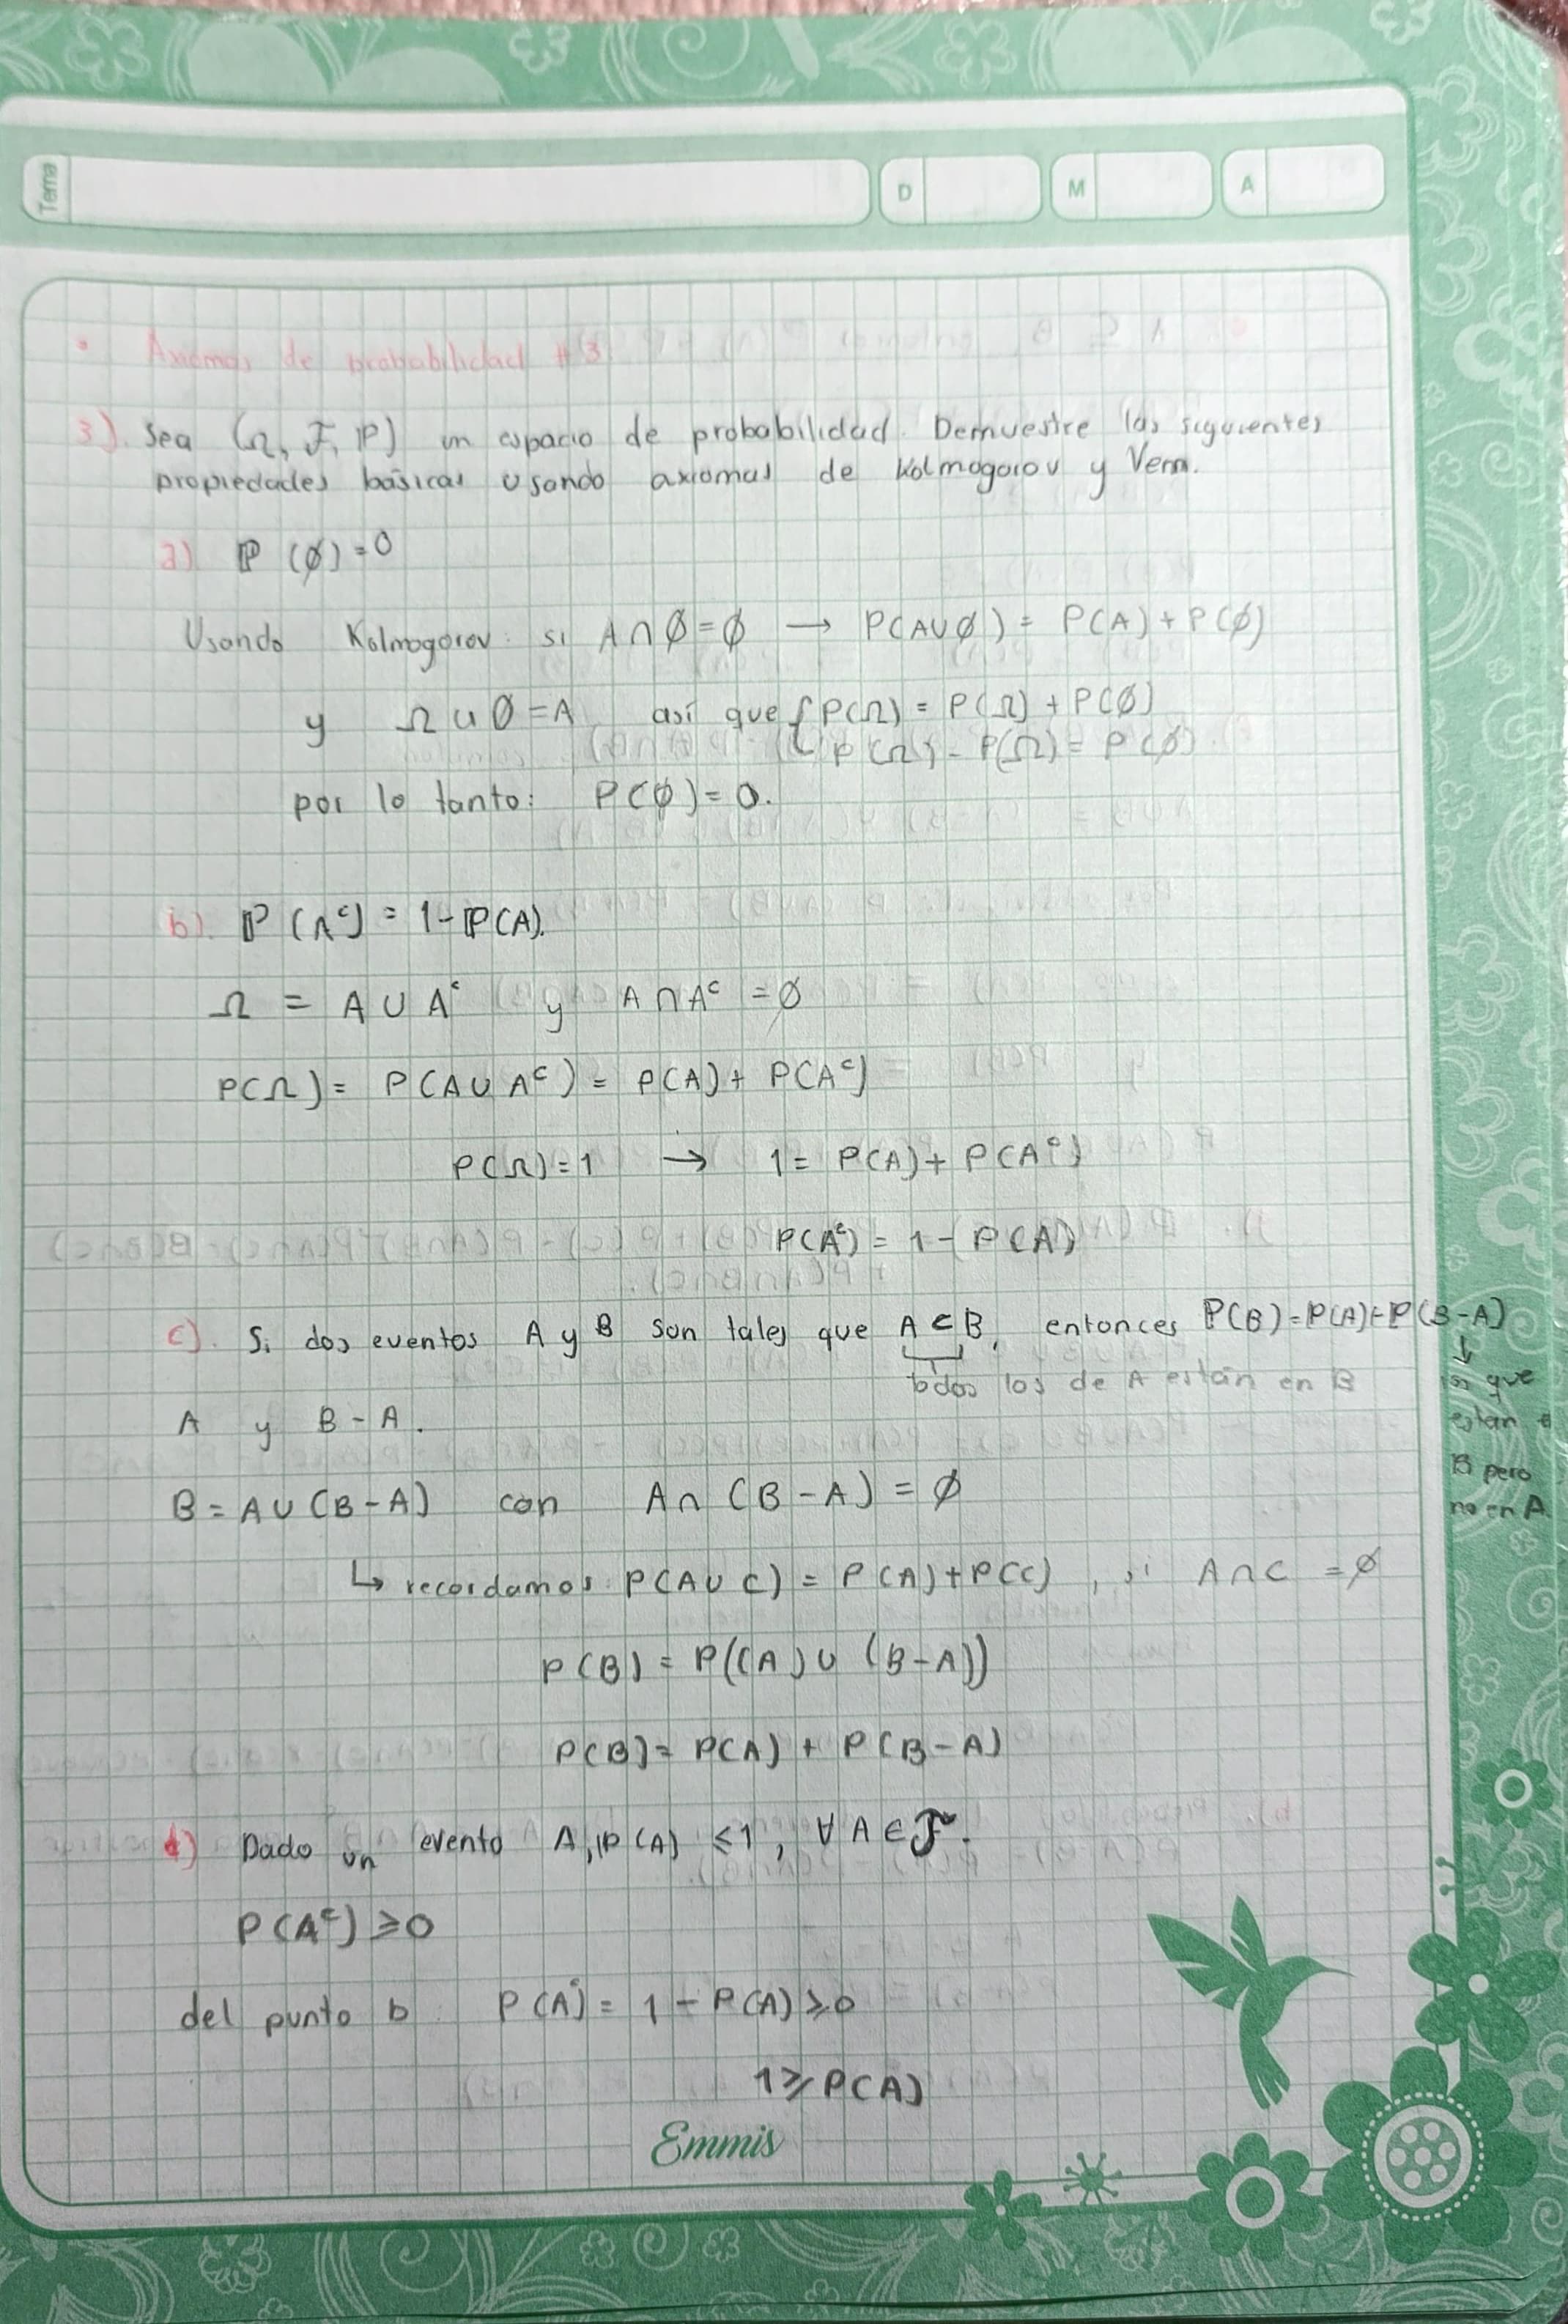 Tema
D
M
A
• Axiomas de probabilidad #3
3). Sea (Ω, ℱ, ℙ) un espacio de probabilidad. Demuestre las siguientes
propiedades básicas usando axiomas de Kolmogorov y Venn.
a) ℙ (∅) = 0
Usando Kolmogorov: si A ∩ ∅ = ∅ → P(A∪∅) = P(A) + P(∅)
y Ω ∪ ∅ = A así que { P(Ω) = P(Ω) + P(∅)
P(Ω) - P(Ω) = P(∅)
por lo tanto: P(∅) = 0.
b). ℙ (Aᶜ) = 1 - ℙ(A).
Ω = A ∪ Aᶜ y A ∩ Aᶜ = ∅
P(Ω) = P(A ∪ Aᶜ) = P(A) + P(Aᶜ)
P(Ω) = 1 → 1 = P(A) + P(Aᶜ)
P(Aᶜ) = 1 - P(A)
c). Si dos eventos A y B son tales que A ⊂ B, entonces ℙ(B) = ℙ(A) + ℙ(B - A)
todos los de A están en B
↓
los que
estan e
B pero
no en A.
A y B - A.
B = A ∪ (B - A) con A ∩ (B - A) = ∅
↳ recordamos: P(A ∪ C) = P(A) + P(C), si A ∩ C = ∅
P(B) = P((A) ∪ (B - A))
P(B) = P(A) + P(B - A)
d) Dado un evento A, ℙ(A) ≤ 1, ∀ A ∈ ℱ.
P(Aᶜ) ≥ 0
del punto b: P(Aᶜ) = 1 - P(A) ≥ 0
1 ≥ P(A)
Emmis